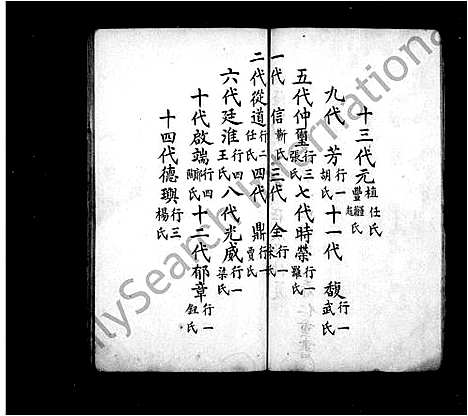 十三代元植任氏
豐羅氏
九代芳行一胡氏十一代馥行一武氏
五代仲璽行三張氏七代時榮行一羅氏
一代信靳氏三代全行一宋氏
二代從道行二任氏四代鼎行一賈氏
六代廷淮行四王氏八代光威行一梁氏
十代啟端行四十二代郁章行一鈕氏
十四代德璵行三楊氏
ilySearch International